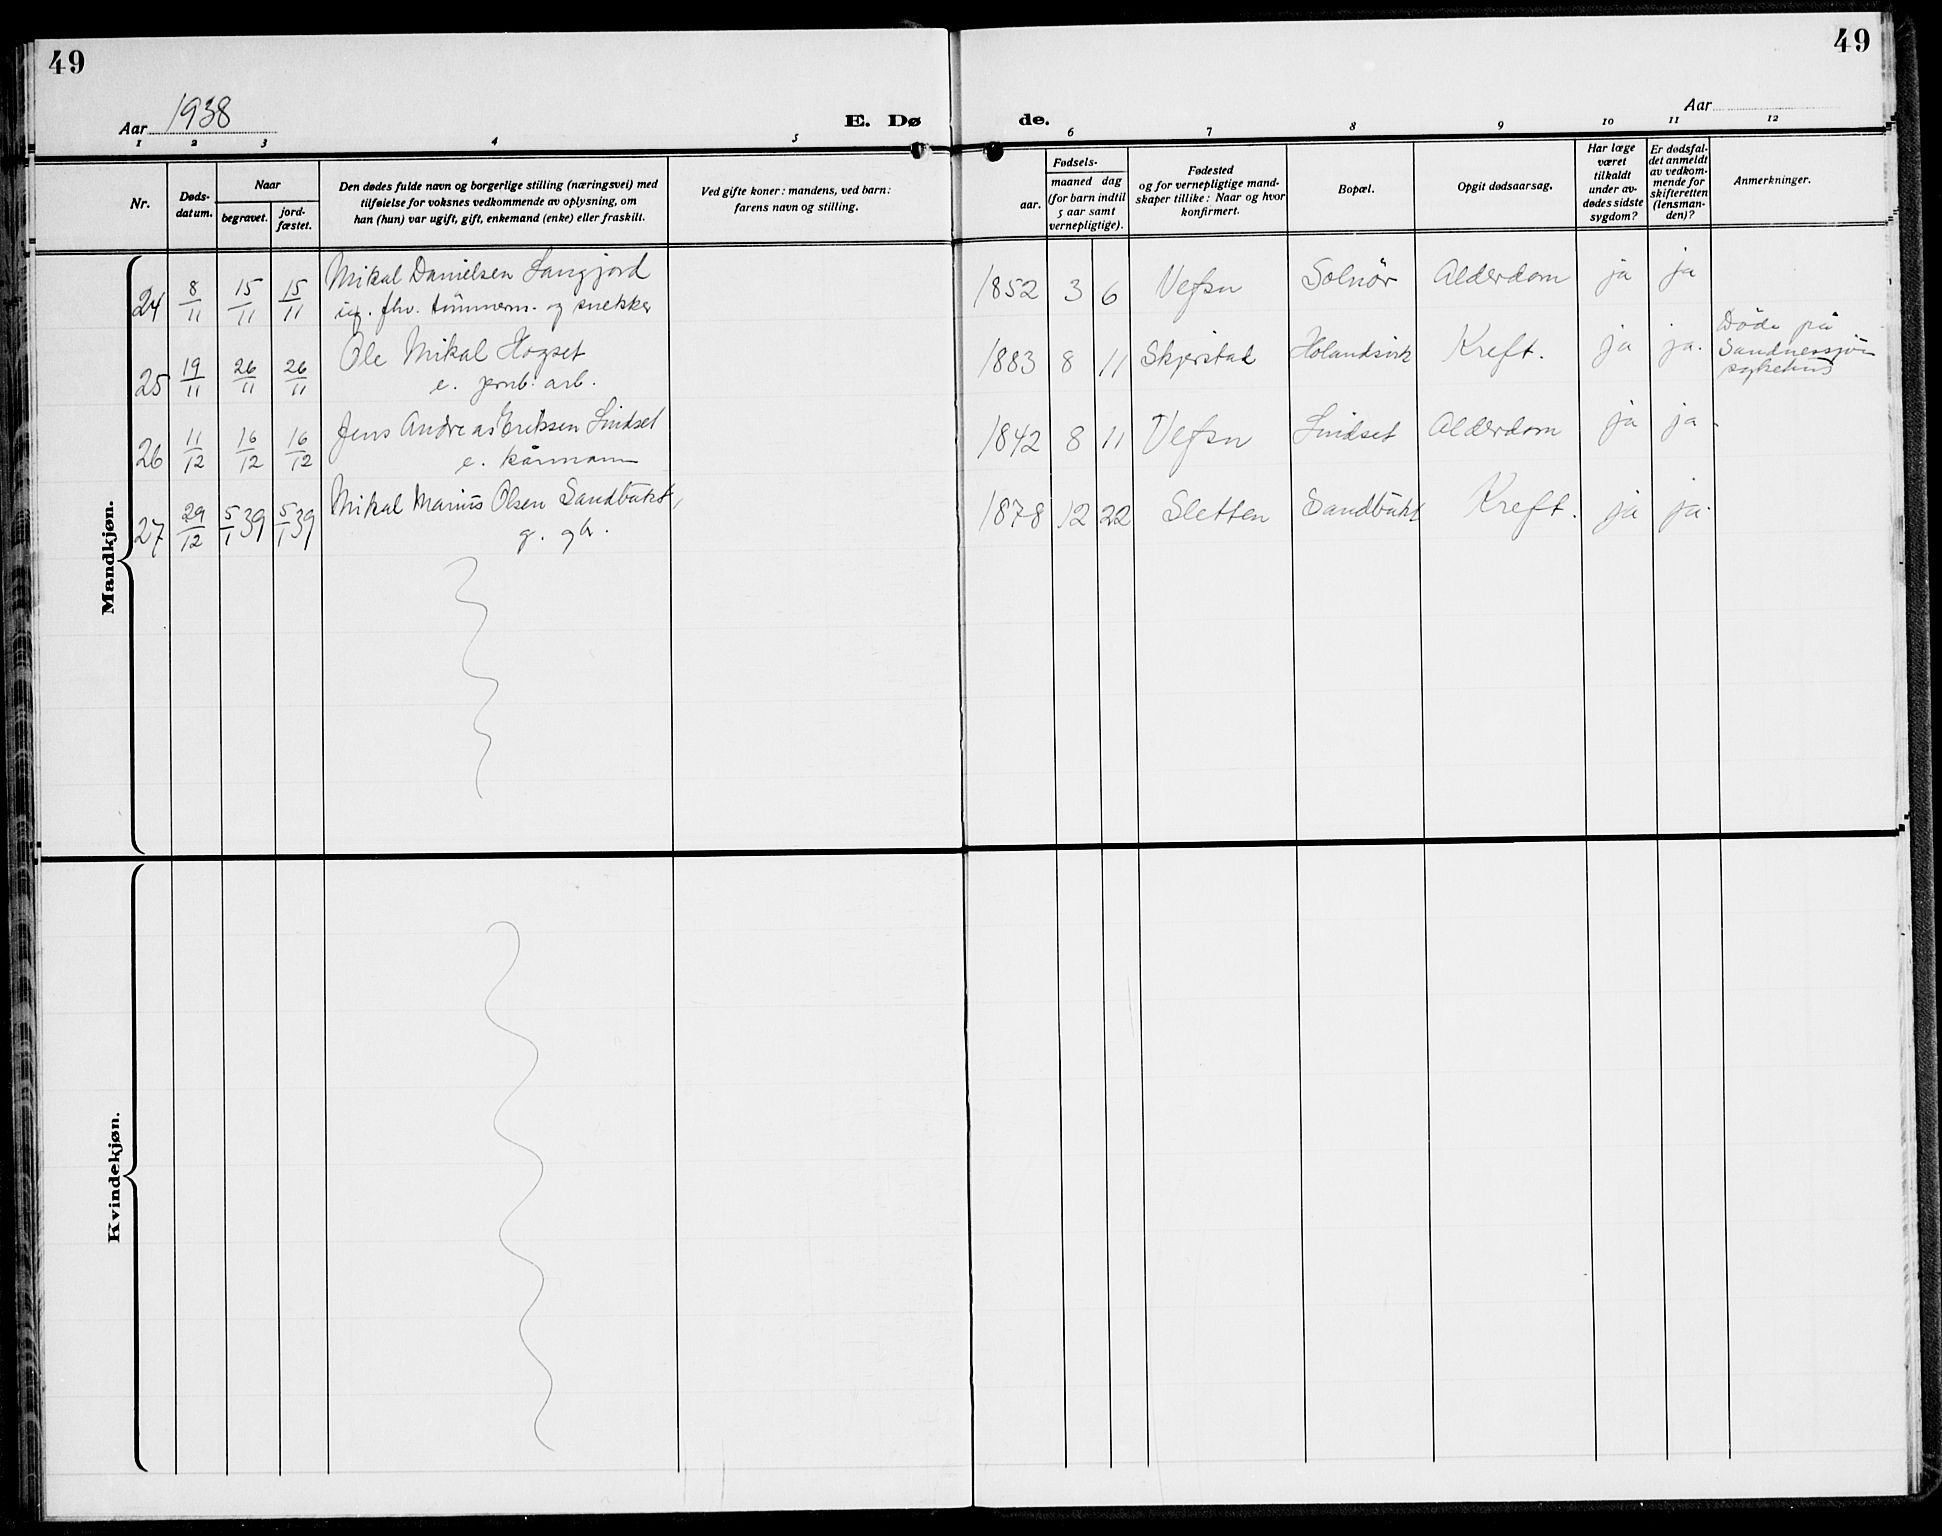 49
49
Aar 1938
E. Dø
de.
Aar
1 2 3 4 5 6 7 8 9 10 11 12
Nr.
Døds-
datum.
Naar
begravet.
jord-
fæstet.
Den dødes fulde navn og borgerlige stilling (næringsvei) med
tilføielse for voksnes vedkommende av oplysning, om
han (hun) var ugift, gift, enkemand (enke) eller fraskilt.
Ved gifte koner: mandens, ved barn:
farens navn og stilling.
Fødsels-
aar.
maaned dag
(for barn indtil
5 aar samt
vernepligtige).
Fødested
og for vernepligtige mand-
skaper tillike: Naar og hvor
konfirmert.
Bopæl.
Opgit dødsaarsag.
Har læge
været
tilkaldt
under av-
dødes sidste
sygdom?
Er dødsfal-
det anmeldt
av vedkom-
mende for
skifteretten
(lensman-
den)?
Anmerkninger.
Mandkjøn.
24 8/11 15/11 15/11 Mikal Danielsen Langjord 1852 3 6 Vefsn Solnör Alderdom ja ja
ug. fhv. tømmerm. og snekker
25 19/11 26/11 26/11 Ole Mikal Hogset 1883 8 11 Skjerstad Holandsvik Kreft. ja ja.
e. jernb. arb.
Döde på
Sandnessjøen
sykehus
26 11/12 16/12 16/12 Jens Andreas Eriksen Lindset 1842 8 11 Vefsn Lindset Alderdom ja ja.
e. kårmann
27 29/12 5/1 39 5/1 39 Mikal Marius Olsen Sandbukt, 1878 12 22 Sletten Sandbukt Kreft. ja ja.
g. gb.
Kvindekjøn.